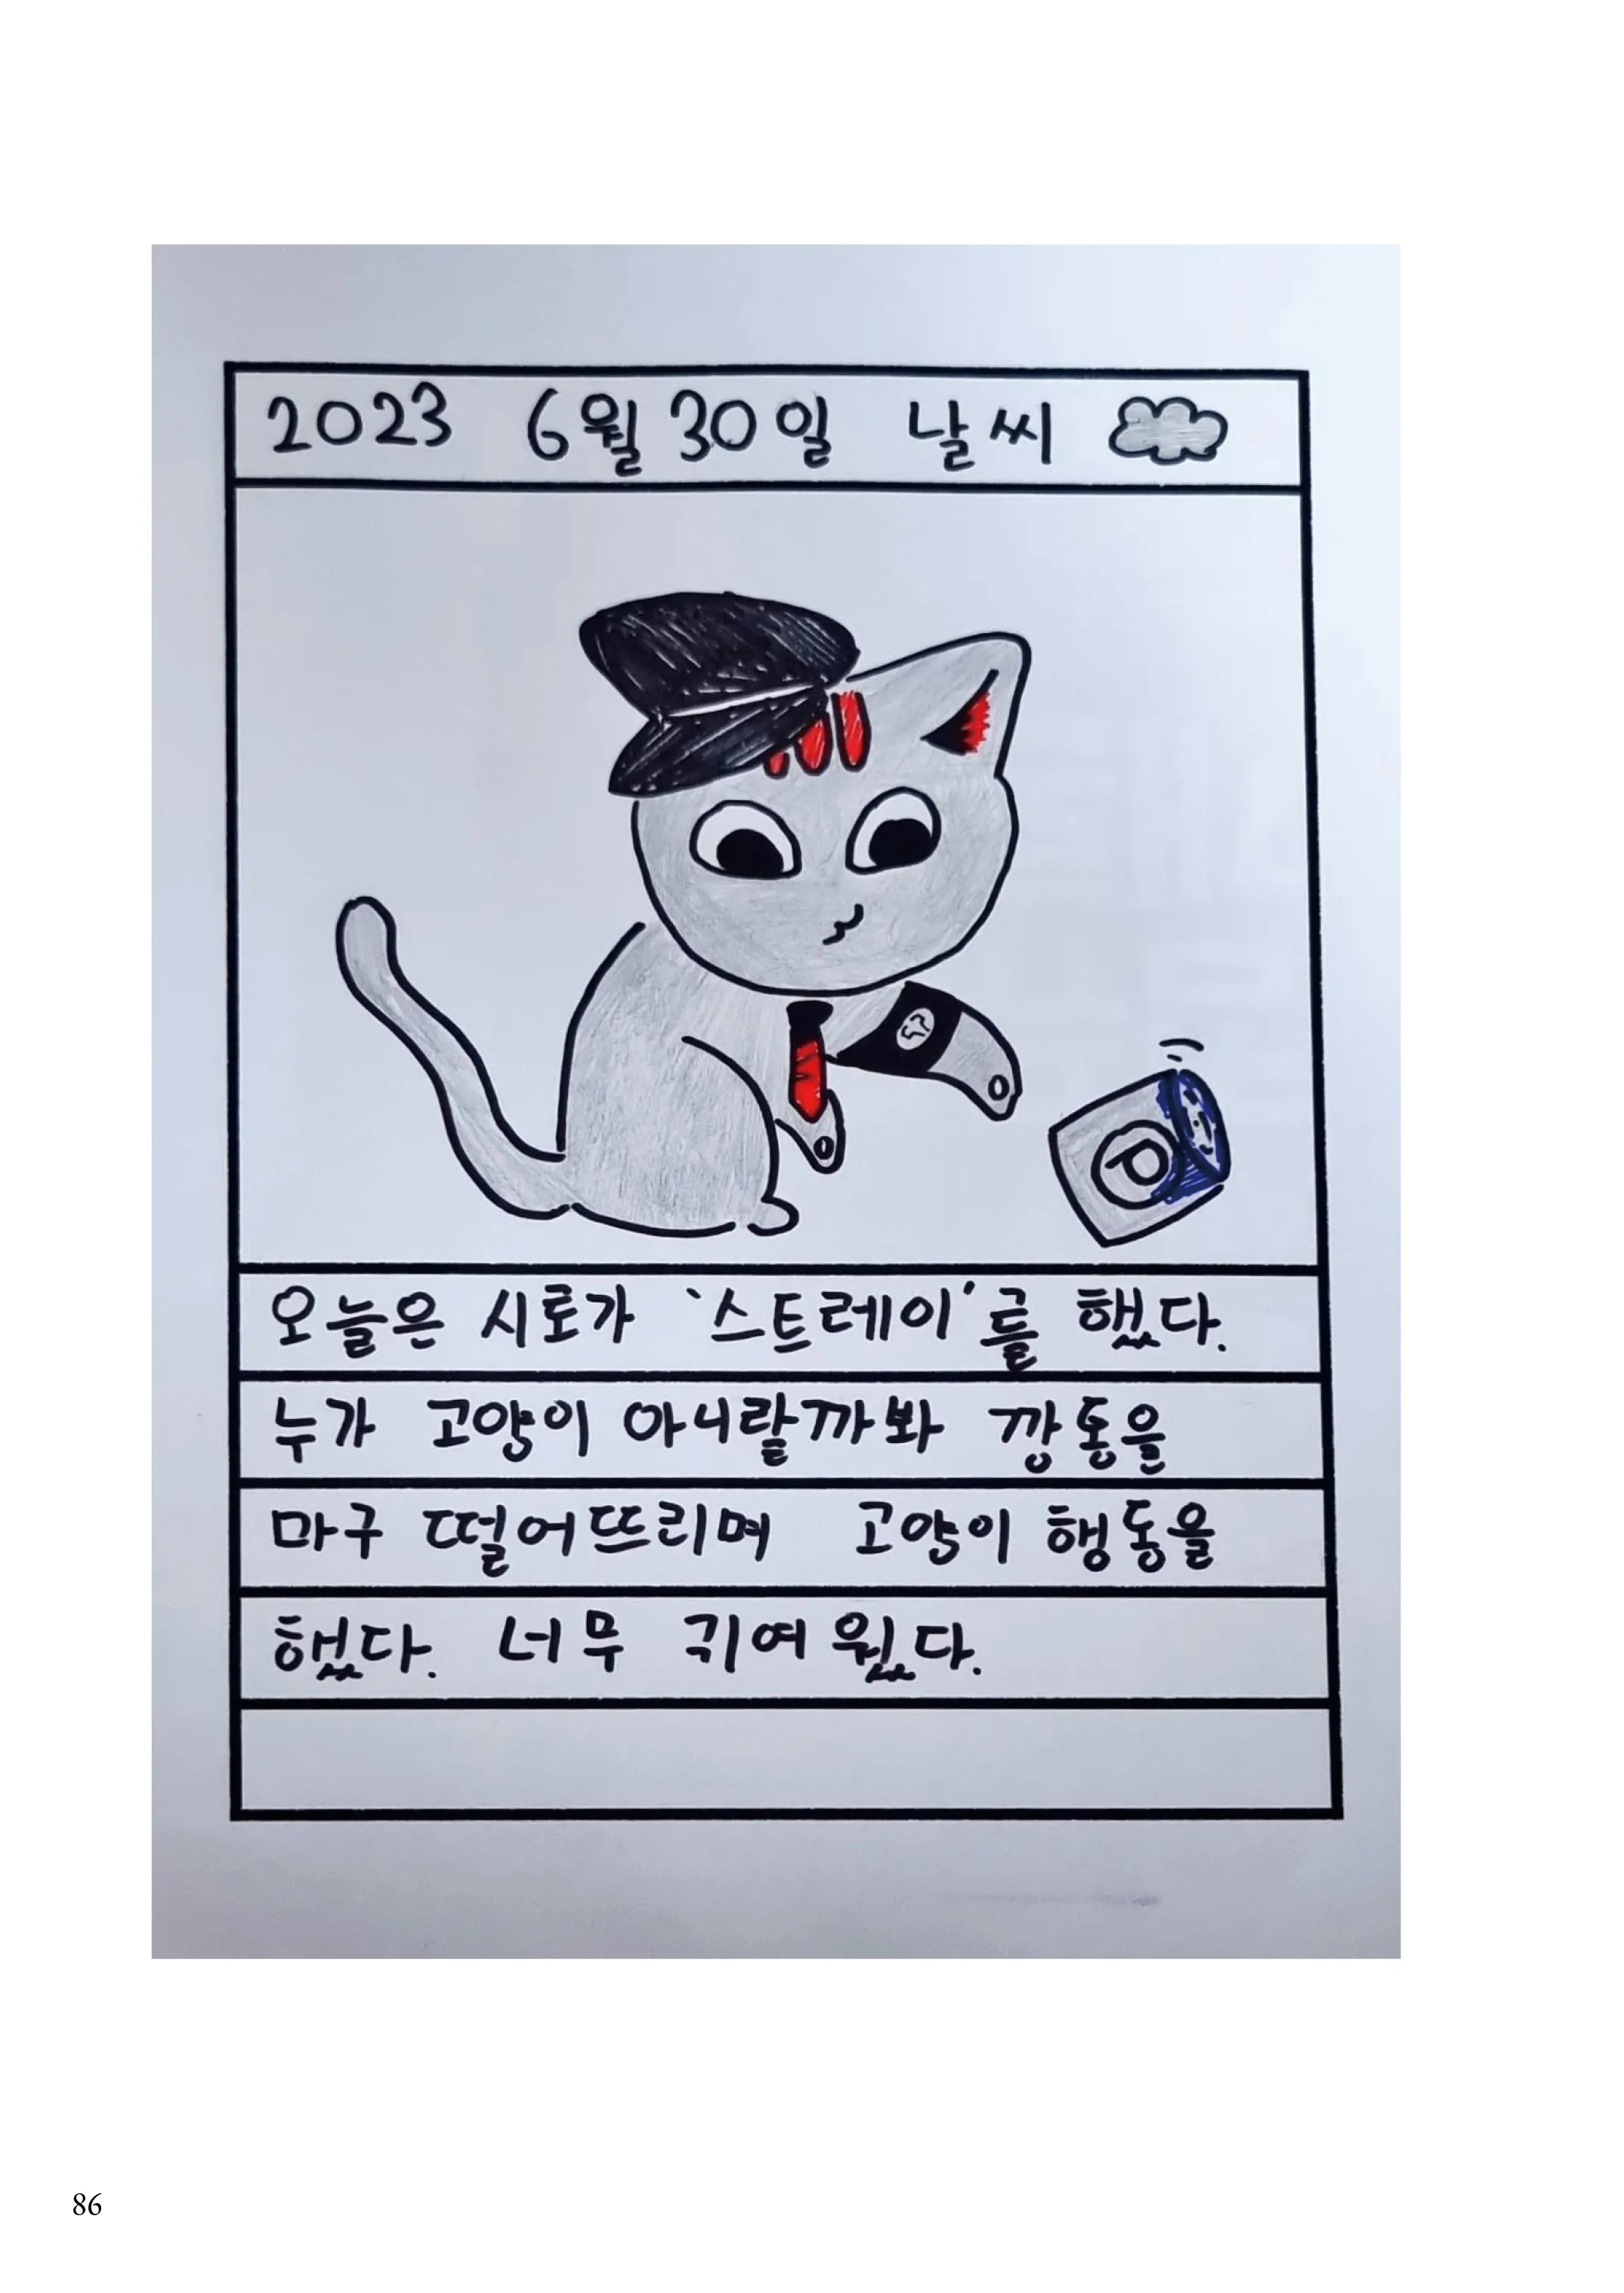 2023 6월 30일 날씨
P
오늘은 시로가 '스트레이'를 했다.
누가 고양이 아니랄까봐 깡통을
마구 떨어뜨리며 고양이 행동을
했다. 너무 귀여웠다.
86